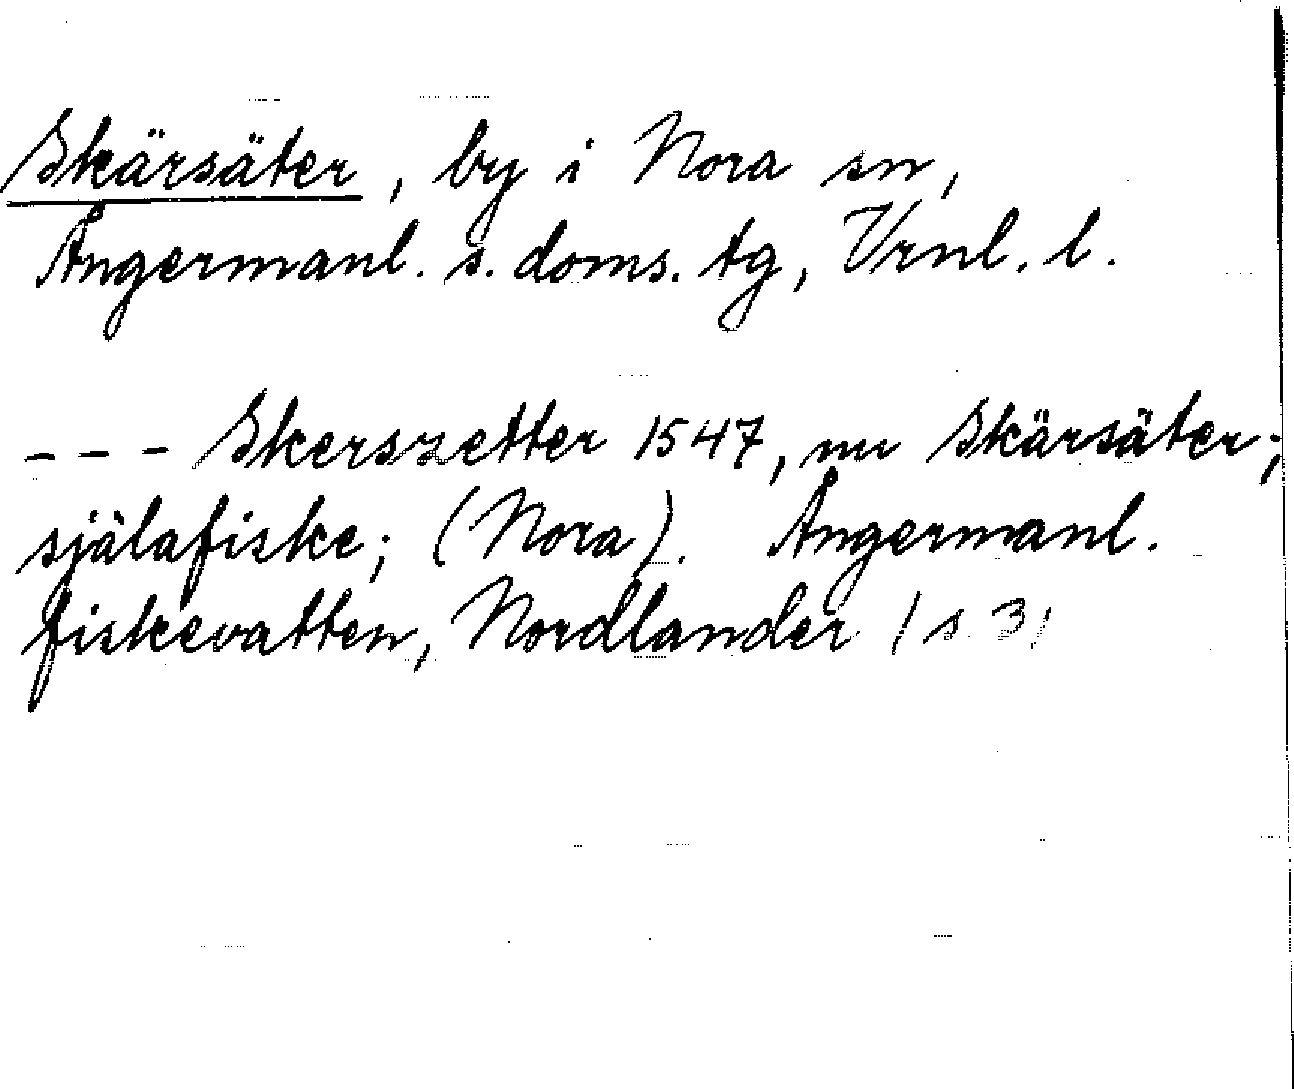 Skärsäter, by i Nora sn,
Ångermanl. s. doms. tg, Vrnl. l.
--- Skerszetter 1547, nu Skärsäter;
själafiske; (Nora). Ångermanl.
fiskevatten, Nordlander (s. 3)